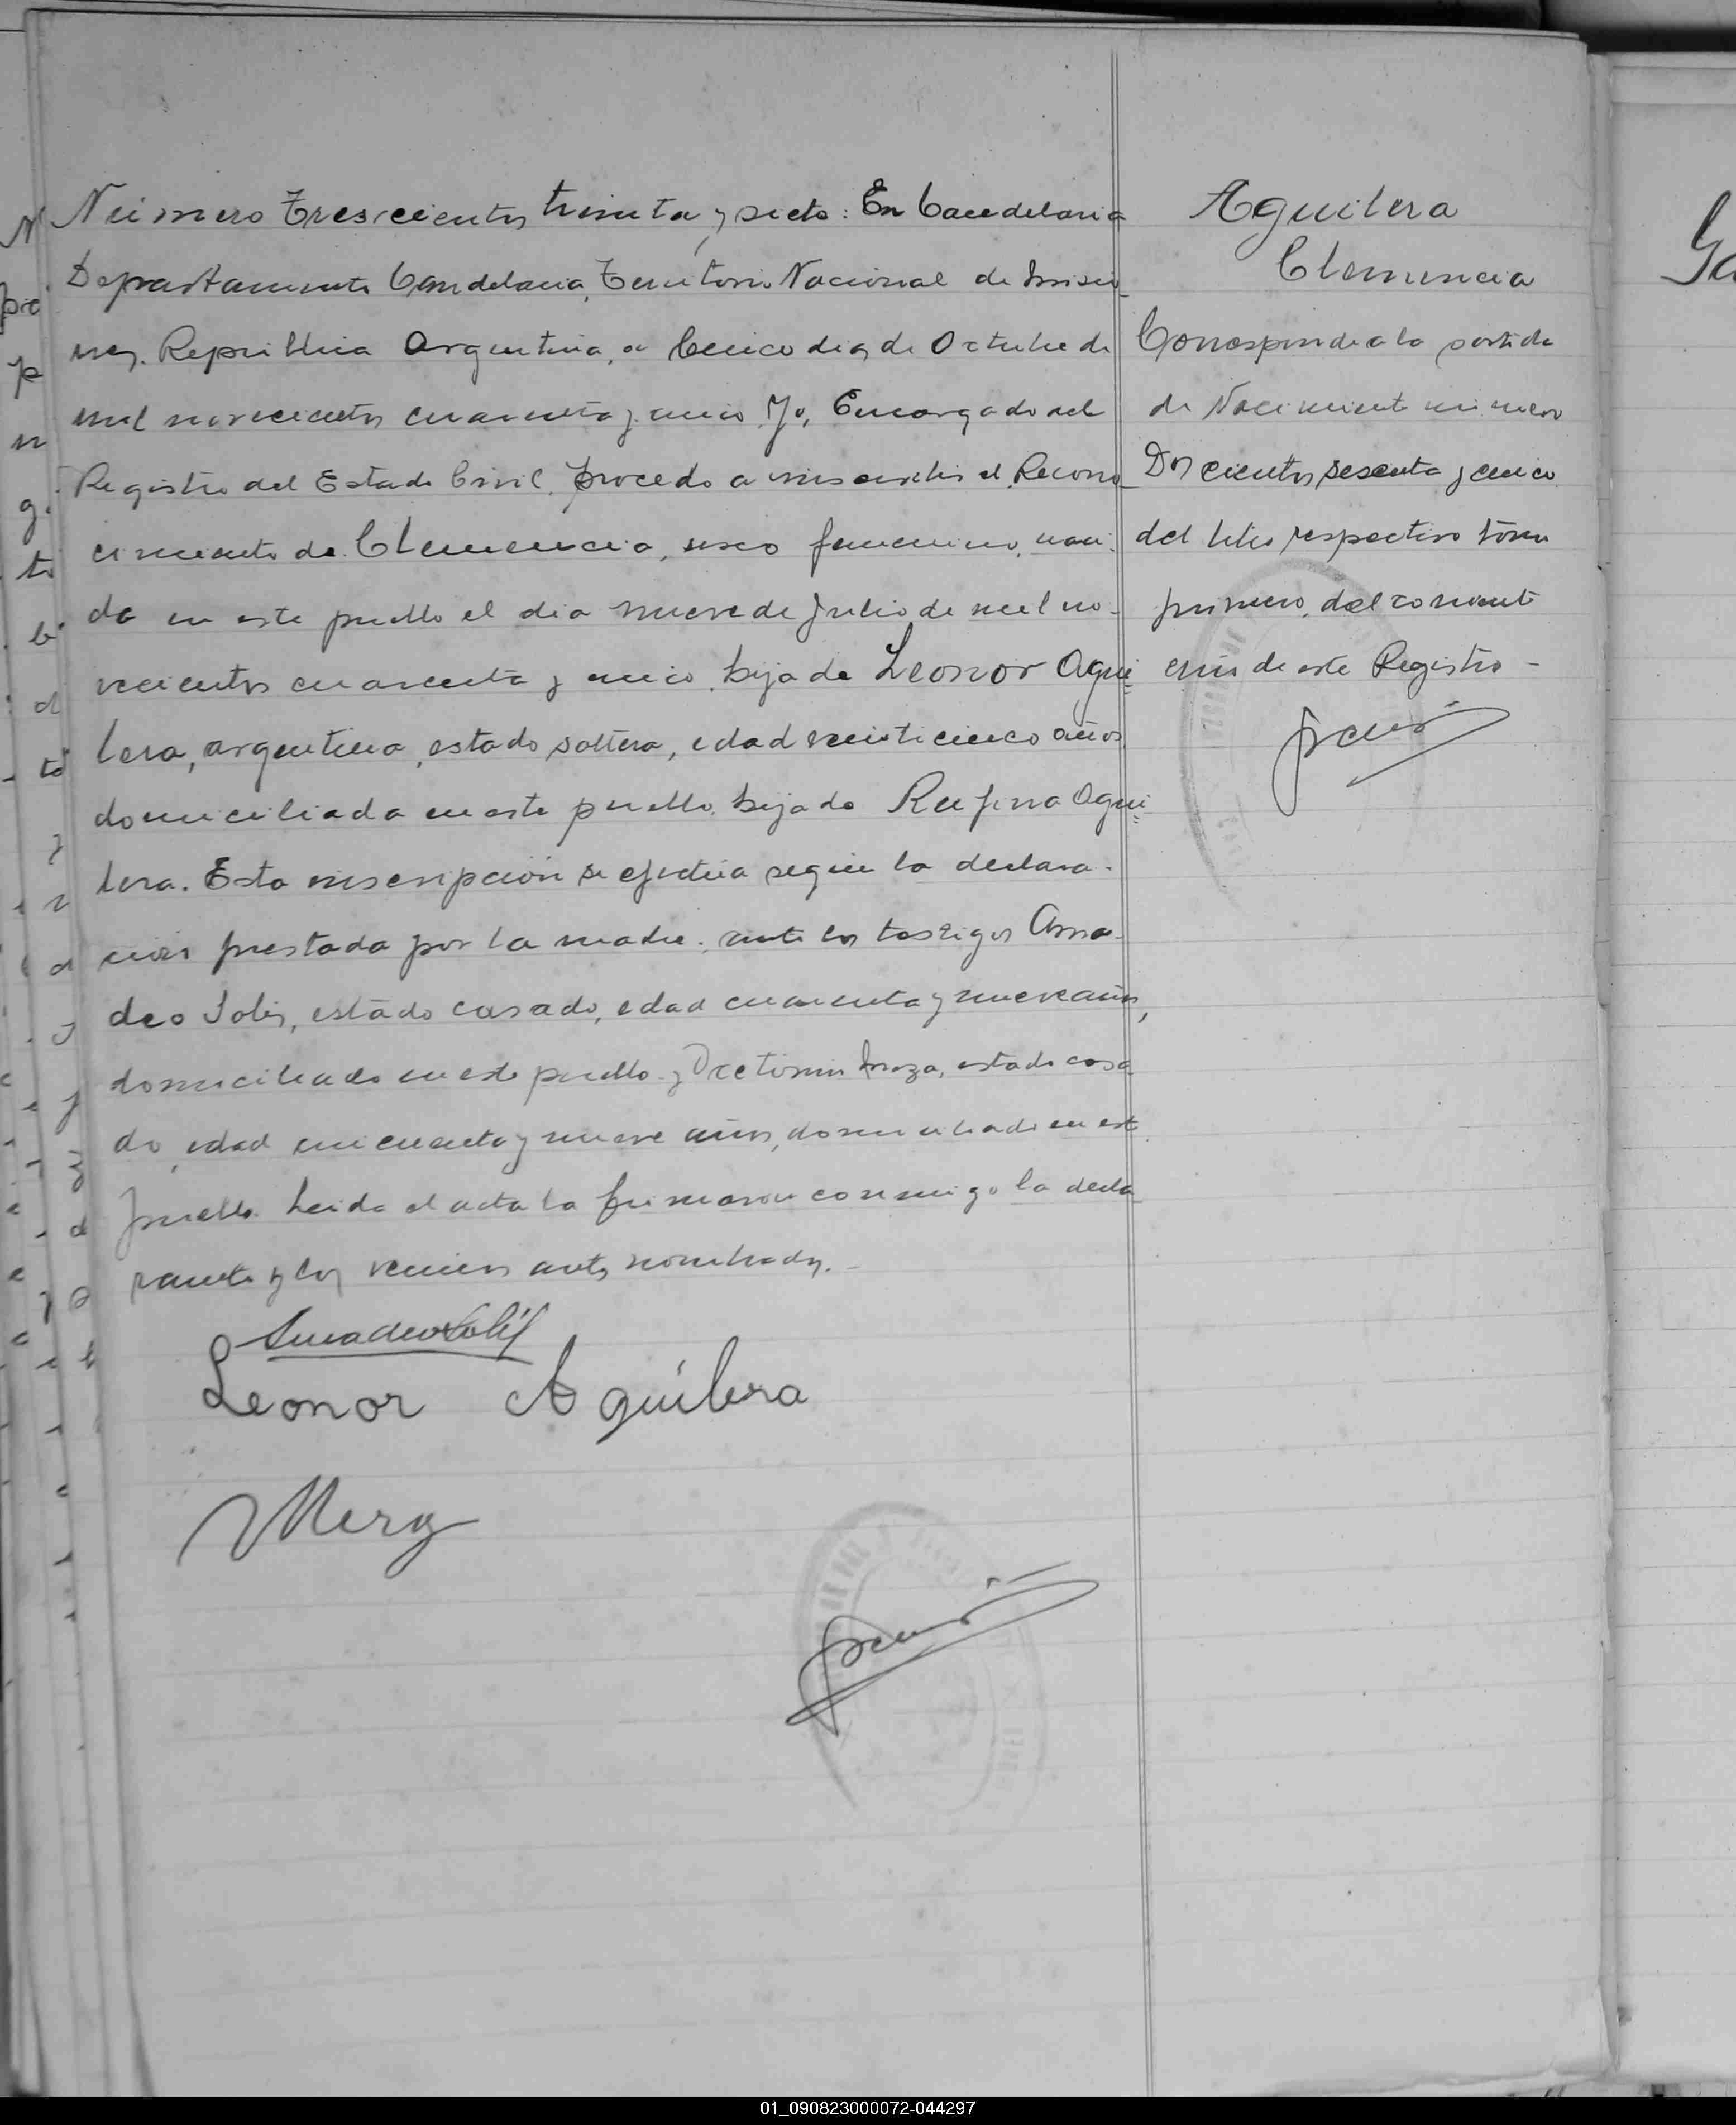 Número Trescientos treinta y siete: En Candelaria
Departamento Candelaria, Territorio Nacional de Misio-
nes. República Argentina, a Cinco dias de Octubre de
mil novecientos cuarenta y cinco. Yo, Encargado del
Registro del Estado Civil, procedo a inscribir el Recono-
cimiento de Clemencia, sexo femenino, naci-
da en este pueblo el dia nueve de Julio de mil no-
vecientos cuarenta y cinco, hija de Leonor Agui-
lera, argentina, estado soltera, edad veinticinco años
domiciliada en este pueblo, hija de Rufina Agui-
lera. Esta inscripción se efectúa según la declara-
ción prestada por la madre, ante los testigos Ama-
deo Solis, estado casado, edad cuarenta y nueve años,
domiciliado en este pueblo y estado casa
do, edad cincuenta y nueve años, domiciliado en este
pueblo. Leida el acta la firmaron conmigo la decla
rante y los vecinos antes nombrados.-
Amadeo Solis
Leonor Aguilera
Aguilera
Clemencia
Corresponde a la partida
de Nacimiento número
Doscientos sesenta y cinco
del libro respectivo tomo
primero, del corriente
año de este Registro-
Ga
01_090823000072-044297